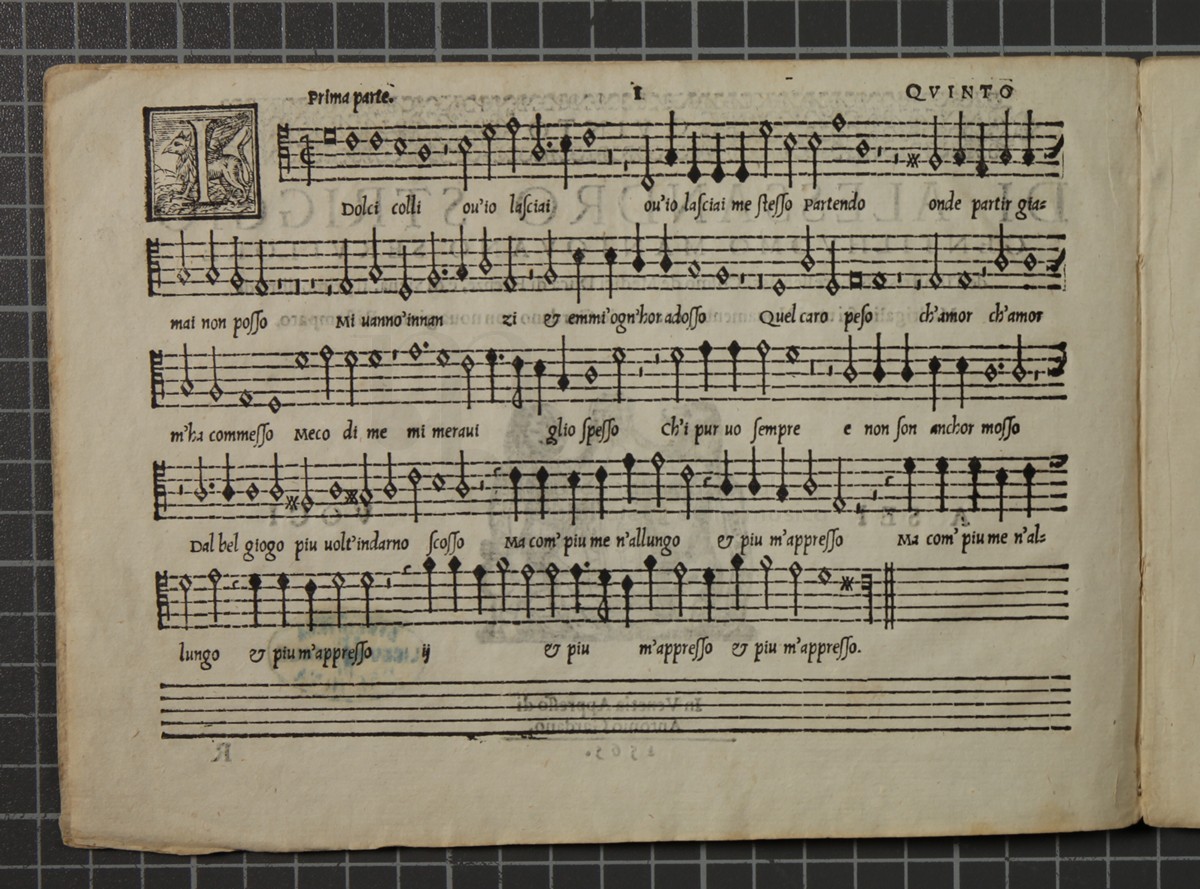 Prima parte. I QVINTO
I Dolci colli ou'io lasciai ou'io lasciai me stesso Partendo onde partir gia-
mai non posso Mi uanno'innan zi & emmi'ogn'hor adosso Quel caro peso ch'amor ch'amor
m'ha commesso Meco di me mi meraui glio spesso Ch'i pur uo sempre e non son anchor mosso
Dal bel giogo piu uolt'indarno scosso Ma com'piu me n'allungo & piu m'appresso Ma com'piu me n'al-
lungo & piu m'appresso ij & piu m'appresso & piu m'appresso.